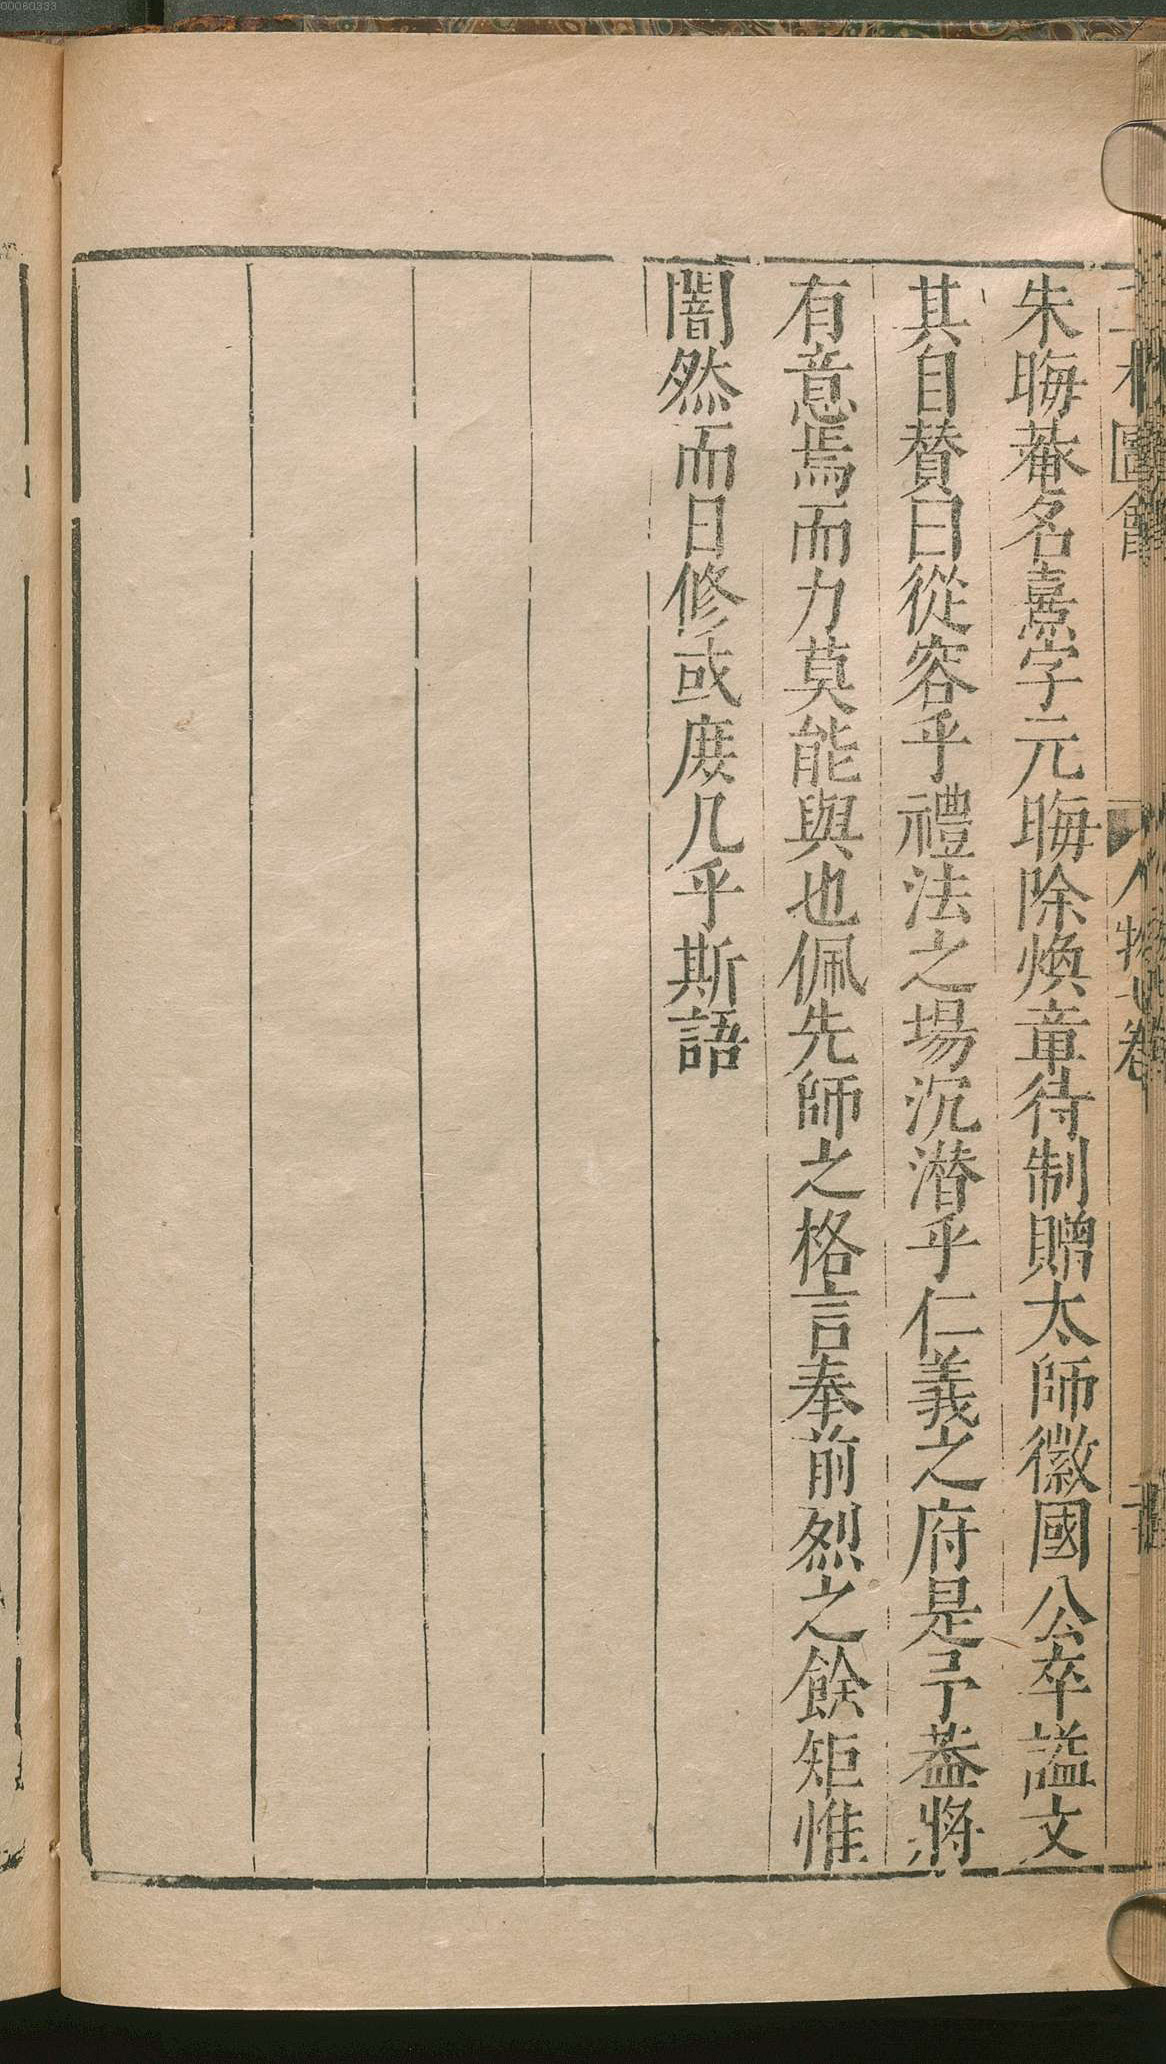 朱晦菴名熹字元晦除煥章待制贈太師徽國公卒謚文
其自賛曰從容乎禮法之場沉潜乎仁義之府是予葢將
有意焉而力莫能與也佩先師之格言奉前烈之餘矩惟
闇然而日修或庻几乎斯語
00060333